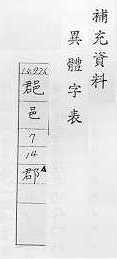 補充資料
異體字表
邑
7
14
郡